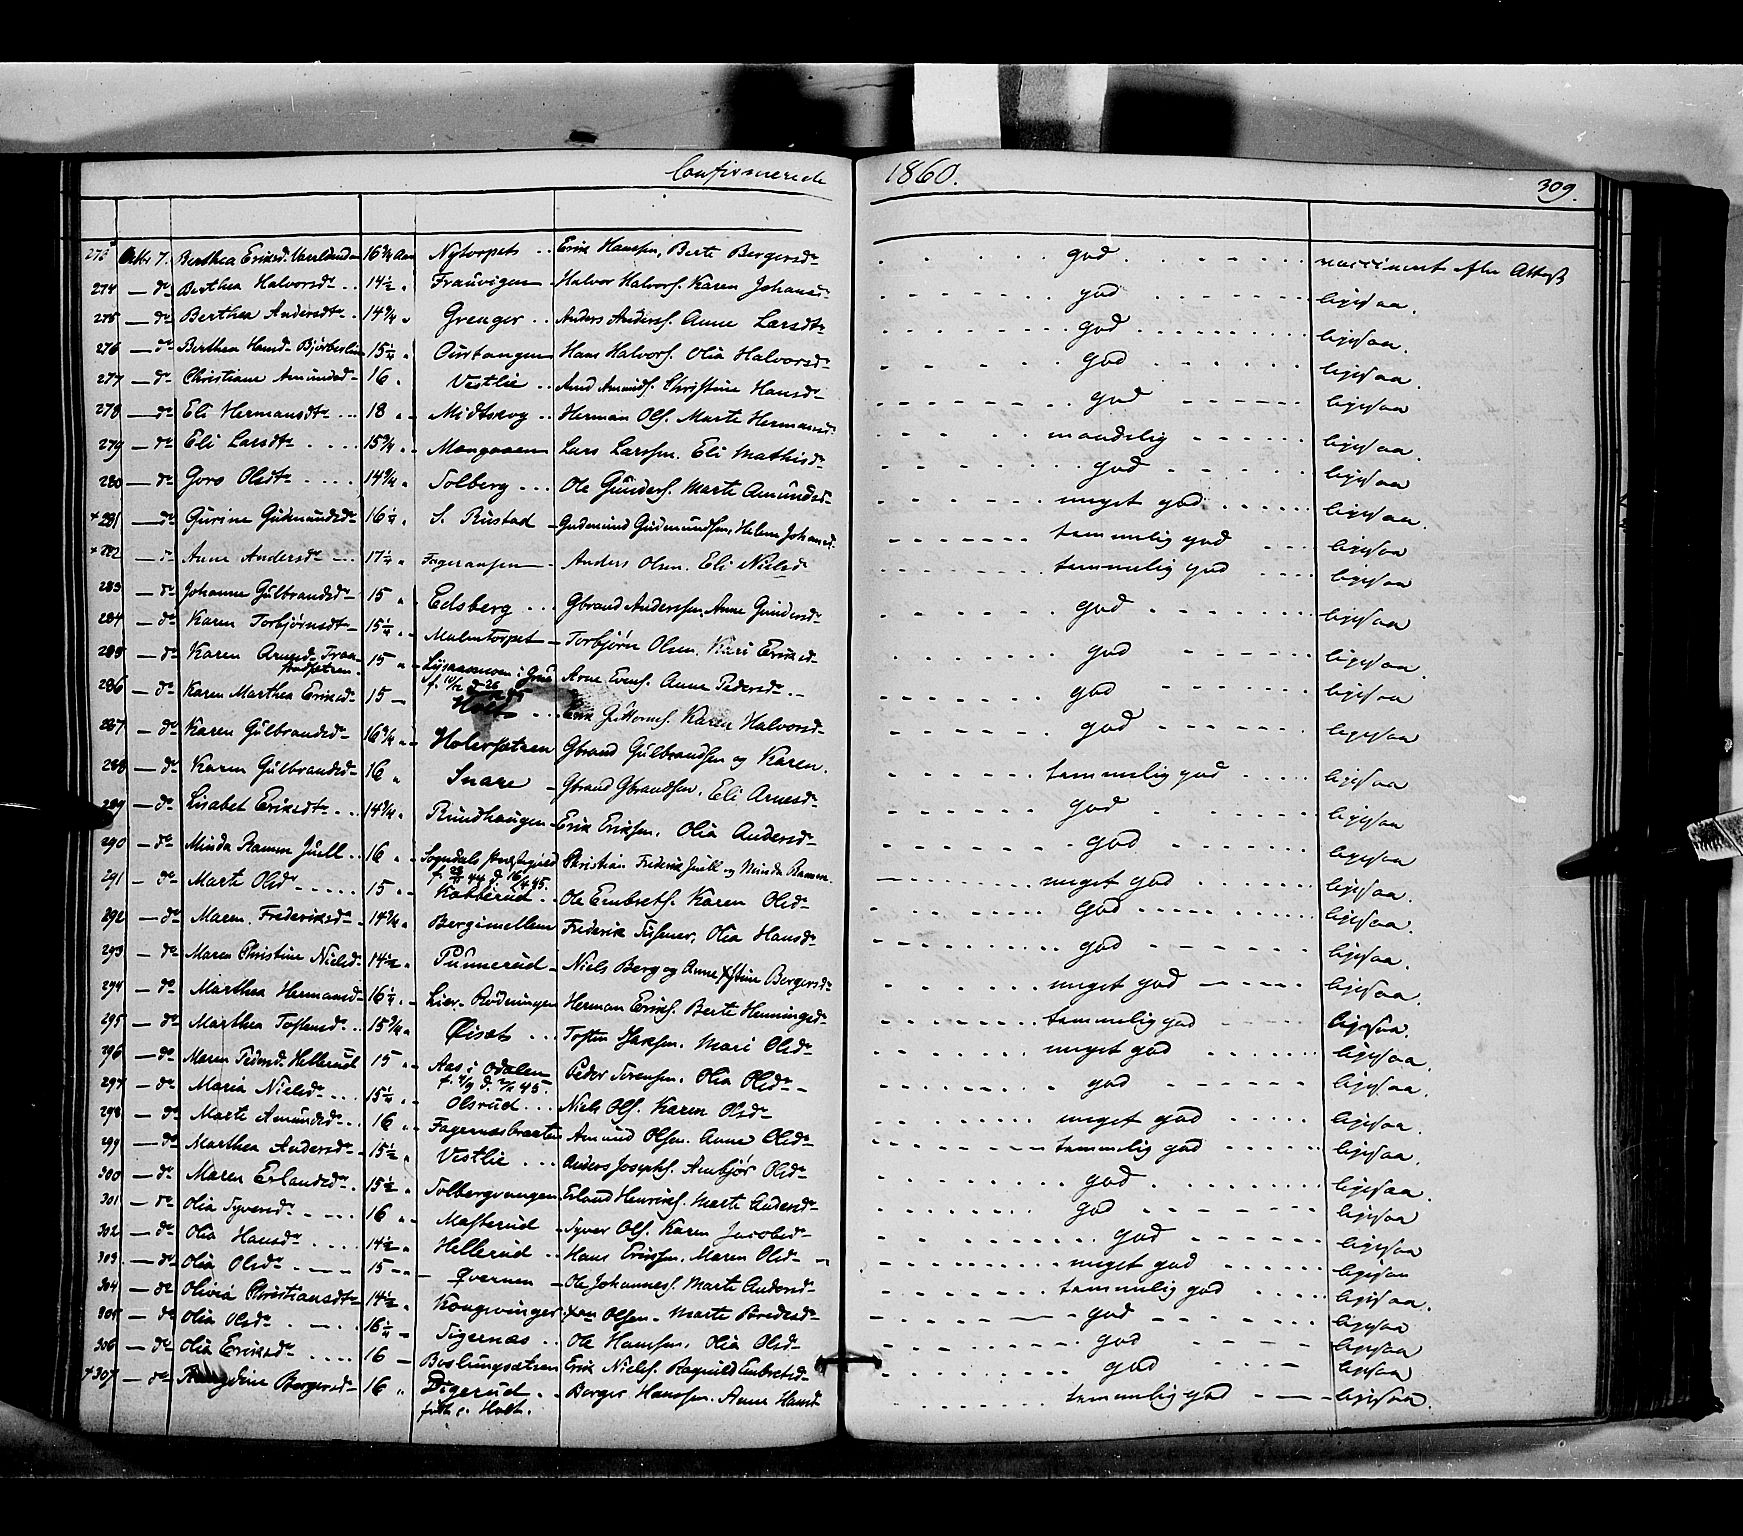 Confirmerede 1860. 309.
273 Octbr 7. Berthea Eriksd. 16 3/4 Aar Nytorpet Erik Hanssen, Berte Bergersdr god vaccineret efter Attest
274 — do Berthea Halvorsdr 14 1/2 Halvor Halvors. Karen Johansdr god ligesaa.
275 — do Berthea Andersdtr 14 3/4 Grenger Anders Anders. Anne Larsdtr god ligesaa.
276 — do Berthea Hansd. 15 1/4 Hans Halvors. Olia Halvorsdr god ligesaa.
277 — do Christiane Amundsd. 16 Vestlie Amd Amunds. Christine Hansdr god ligesaa
278 — do Eli Hermansdtr 18 Midtskog Herman Ols. Marte Hermansd. maadelig ligesaa.
279 — do Eli Larsdtr 15 3/4 Mangaaen Lars Larssen. Eli Mathisdr god ligesaa
280 — do Goro Olsdtr 14 3/4 Solberg Ole Gunders. Marte Amundsd. meget god ligesaa.
+ 281 — do Gurine Gudmundsdr 16 1/4 S. Rustad Gudmund Gudmundsen, Helene Johansd. temmelig god ligesaa
+ 282 — do Anne Andersdr 17 1/4 Anders Olsen. Eli Nielsd temmelig god ligesaa
283 — do Johanne Gulbrandsdr 15 Edsberg Gbrand Anderssen, Anne Gundersdr god ligesaa
284 — do Karen Torbjørnsdtr 15 1/4 Malmtorpet Torbjørn Olsen. Kari Eriksd. god ligesaa.
285 — do Karen Arnesd. 15 i Grue Arne Evens. Anne Pedersdr god ligesaa
286 — do Karen Marthea Eriksdr 15 Holt Erik Guttorms. Karen Halvorsd. god ligesaa
287 — do Karen Gulbrandsdr 16 3/4 Holersætren Gbrand Gulbrandsen og Karen. temmelig god ligesaa
288 — do Karen Gulbrandsdr 16 Snare Gbrand Gbrandsen, Eli Arnesdr god ligesaa
289 — do Lisabet Eriksdtr 14 3/4 Rundhaugen Erik Eriksen. Olia Andersdr god ligesaa
290 — do Minda Ramm Juell 16 Sogndals Præstegjeld Christian Frederik Juell og Minda Ramm. meget god ligesaa.
291 — do Marte Olsdr 15 Kabberud Ole Embrets. Karen Olsdr god ligesaa.
292 — do Maren Frederiksdr 14 3/4 Bergimellem Frederik Olia Hansdr god ligesaa.
293 — do Maren Christine Nielsd. 14 1/2 Punnerud Niels Berg og Anne Bergersdr meget god ligesaa.
294 — do Marthea Hermansd. 16 1/4 Lier. Rødningen Herman Eriks. Berte Henningsdr temmelig god ligesaa.
295 — do Marthea Tostensdr 15 3/4 Øiset Tosten Mari Olsdr meget god ligesaa.
296 — do Maren Pedersd. Hellerud 15 Aas i Odalen Peder Sørensen. Olia Olsdr god ligesaa.
297 — do Maria Nielsdr 15 1/4 Olsrud Niels Ols. Karen Olsdr meget god ligesaa.
298 — do Marte Amundsdr 16 Fagernæsbraaten Amund Olsen. Anne Olsdr temmelig god ligesaa.
299 — do Marthea Andersdr 15 1/2 Vestlie Anders Josephs. Ambjør Olsdr god ligesaa.
300 — do Maren Erlandsdr 15 1/2 Solbergvangen Erland Henriks. Marte Andersdr god ligesaa
301 — do Olia Syversdr 16 Masterud Syver Ols. Karen Jacobsdr god ligesaa
302 — do Olia Hansdr 14 1/2 Hellerud Hans Erikssen. Maren Olsdr meget god ligesaa
303 — do Olia Olsdr 15 Qvernen Ole Johannes. Marte Andersdr temmelig god ligesaa.
304 — do Olivia Christiansdtr 14 1/2 Kongsvinger Xtian Olsen. Marte Bredesdr god ligesaa
305 — do Olia Olsdr 16 1/4 Sigernæs Ole Hanssen. Olia Olsdr god ligesaa
306 — do Olia Eriksdr 16 Baslungsætren Erik Niels. Ragnild Embretsd. god ligesaa
+ 307 — do Bergersdr 16 Digerud født i Holt. Berger Hanssen. Anne Hansd temmelig god ligesaa.